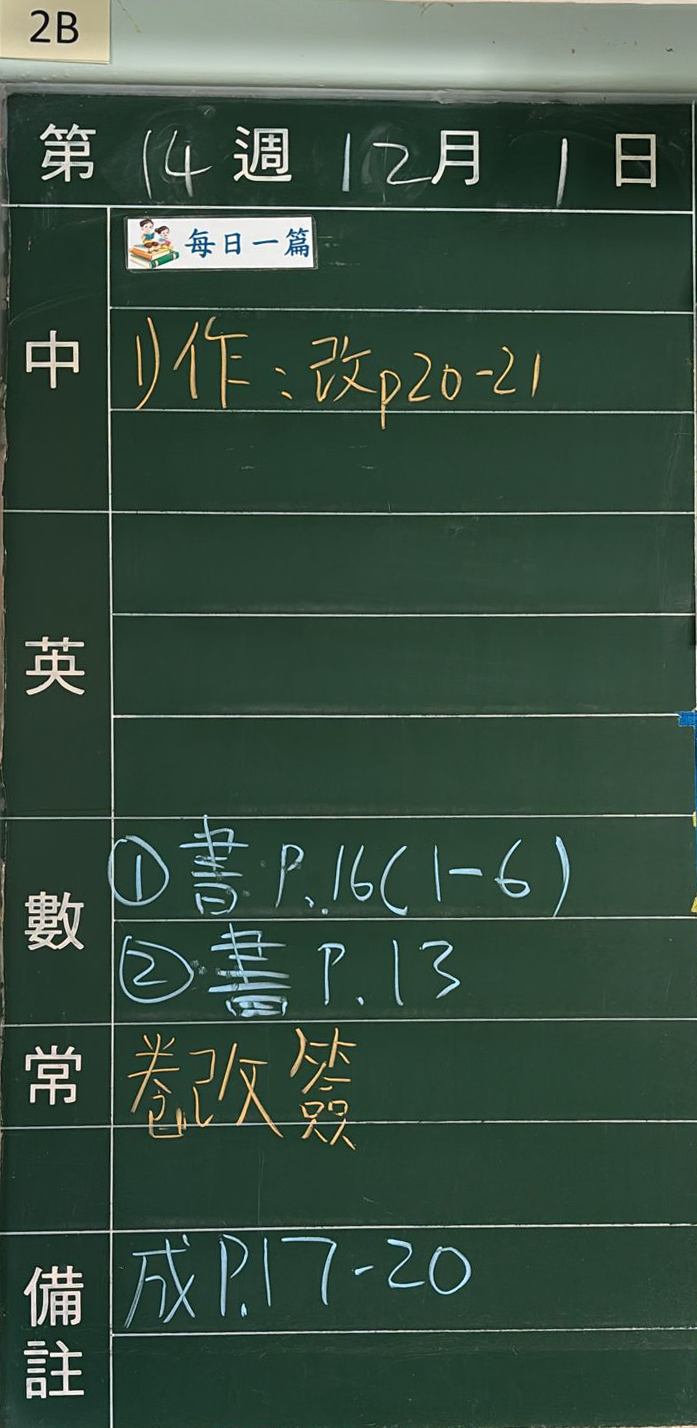 2B
第 14 週 12月 1 日
中
每日一篇
1)作:改p20-21
英
數
①書 P.16(1-6)
②書 P.13
常
卷改簽
備註
成P.17-20